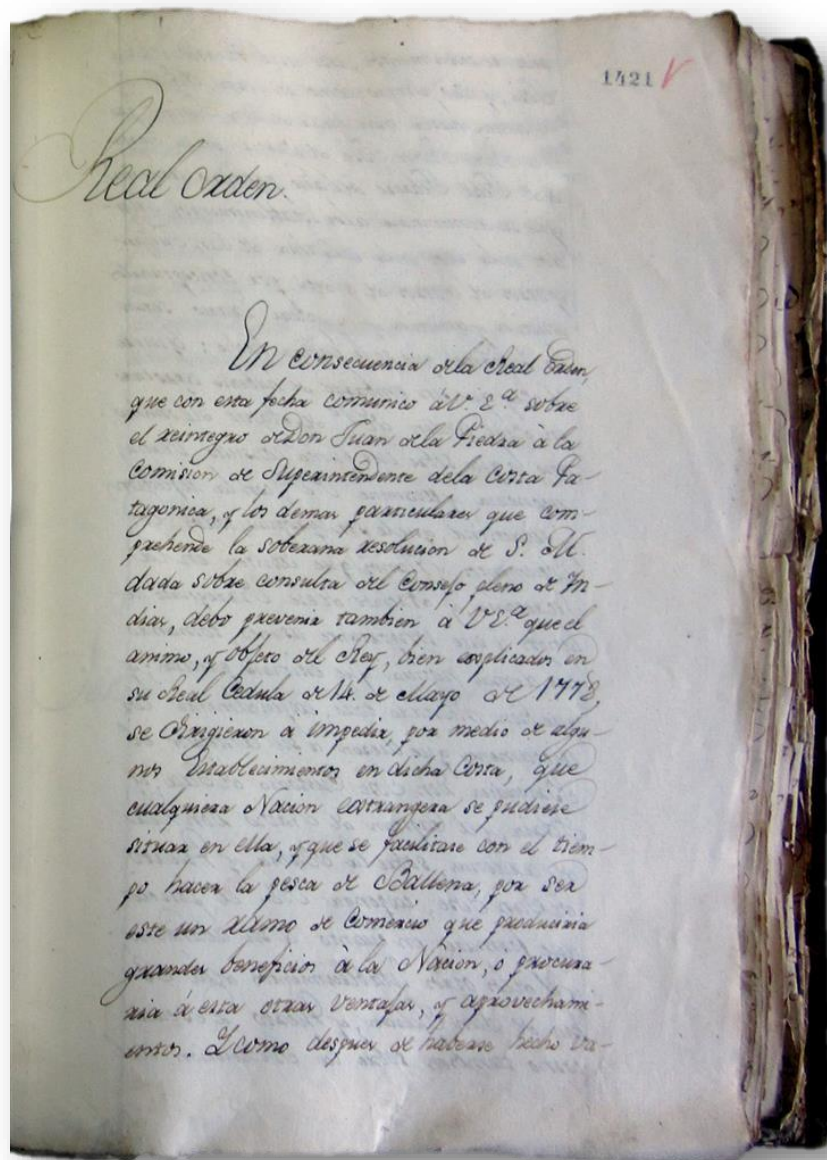 1421
Real Orden.
En consecuencia dela Real Orden,
que con esta fecha comunico à V. E.ª sobre
el reintegro de Don Juan dela Piedra à la
Comision de Superintendente dela Costa Pa-
tagonica, y los demas particulares que com-
prehende la soberana resolucion de S. M.
dada sobre consulta del Consejo pleno de In-
dias, debo prevenir tambien à V E.ª que el
animo, y objeto del Rey, bien explicados en
su Real Cedula de 14. de Mayo de 1778,
se dirigieron à impedir, por medio de algu-
nos Establecimientos en dicha Costa, que
cualquiera Nacion extrangera se pudiese
situar en ella, y que se facilitase con el tiem-
po hacer la pesca de Ballena, por ser
este un ramo de Comercio que produciria
grandes beneficios à la Nacion, ò procura-
ria à esta otras ventajas, y aprovechami-
entos. Y como despues de haberse hecho va-